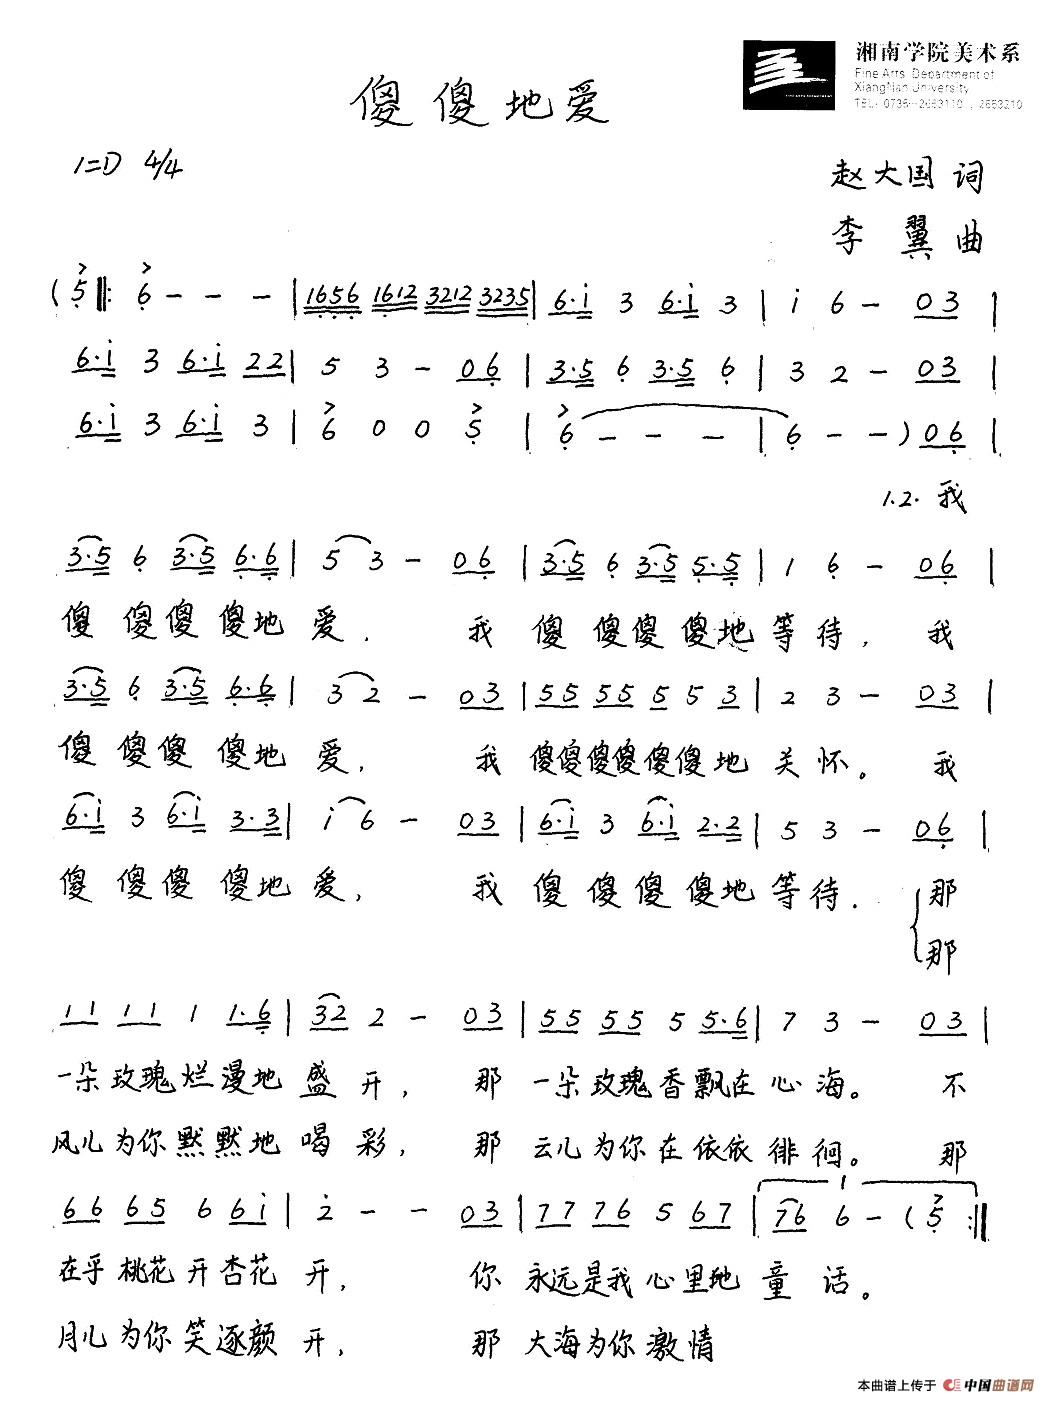 湘南学院美术系
Fine Arts Department of
XiangNan University
TEL: 0735-2653110, 2653210
傻傻地爱
1=D 4/4
赵大国 词
李翼 曲
(5 ‖: 6 - - - | 1656 1612 3212 3235 | 6·i 3 6·i 3 | i 6 - 03 |
6·i 3 6·i 22 | 5 3 - 06 | 3·5 6 3·5 6 | 3 2 - 03 |
6·i 3 6·i 3 | 6 0 0 5 | 6 - - - | 6 - - ) 06 |
1.2. 我
3·5 6 3·5 6·6 | 5 3 - 06 | 3·5 6 3·5 5·5 | 1 6 - 06 |
傻 傻傻 傻地 爱. 我 傻 傻傻 傻地 等待, 我
3·5 6 3·5 6·6 | 3 2 - 03 | 55 55 5 5 3 | 2 3 - 03 |
傻 傻傻 傻地 爱, 我 傻傻傻傻傻傻地 关怀。 我
6·i 3 6·i 3·3 | i 6 - 03 | 6·i 3 6·i 2·2 | 5 3 - 06 |
傻 傻傻 傻地 爱, 我 傻 傻傻 傻地 等待. 那
那
11 11 1 1·6 | 32 2 - 03 | 55 55 5 5·6 | 7 3 - 03 |
一朵玫瑰烂漫地 盛开, 那 一朵玫瑰香飘在 心海。 不
风儿为你默默地 喝彩, 那 云儿为你在依依 徘徊。 那
1
66 65 6 6i | 2 - - 03 | 77 76 5 67 | 76 6 - (5 :‖
在乎桃花开杏花 开, 你 永远是我心里地 童话。
月儿为你笑逐颜 开, 那 大海为你激情
本曲谱上传于 中国曲谱网